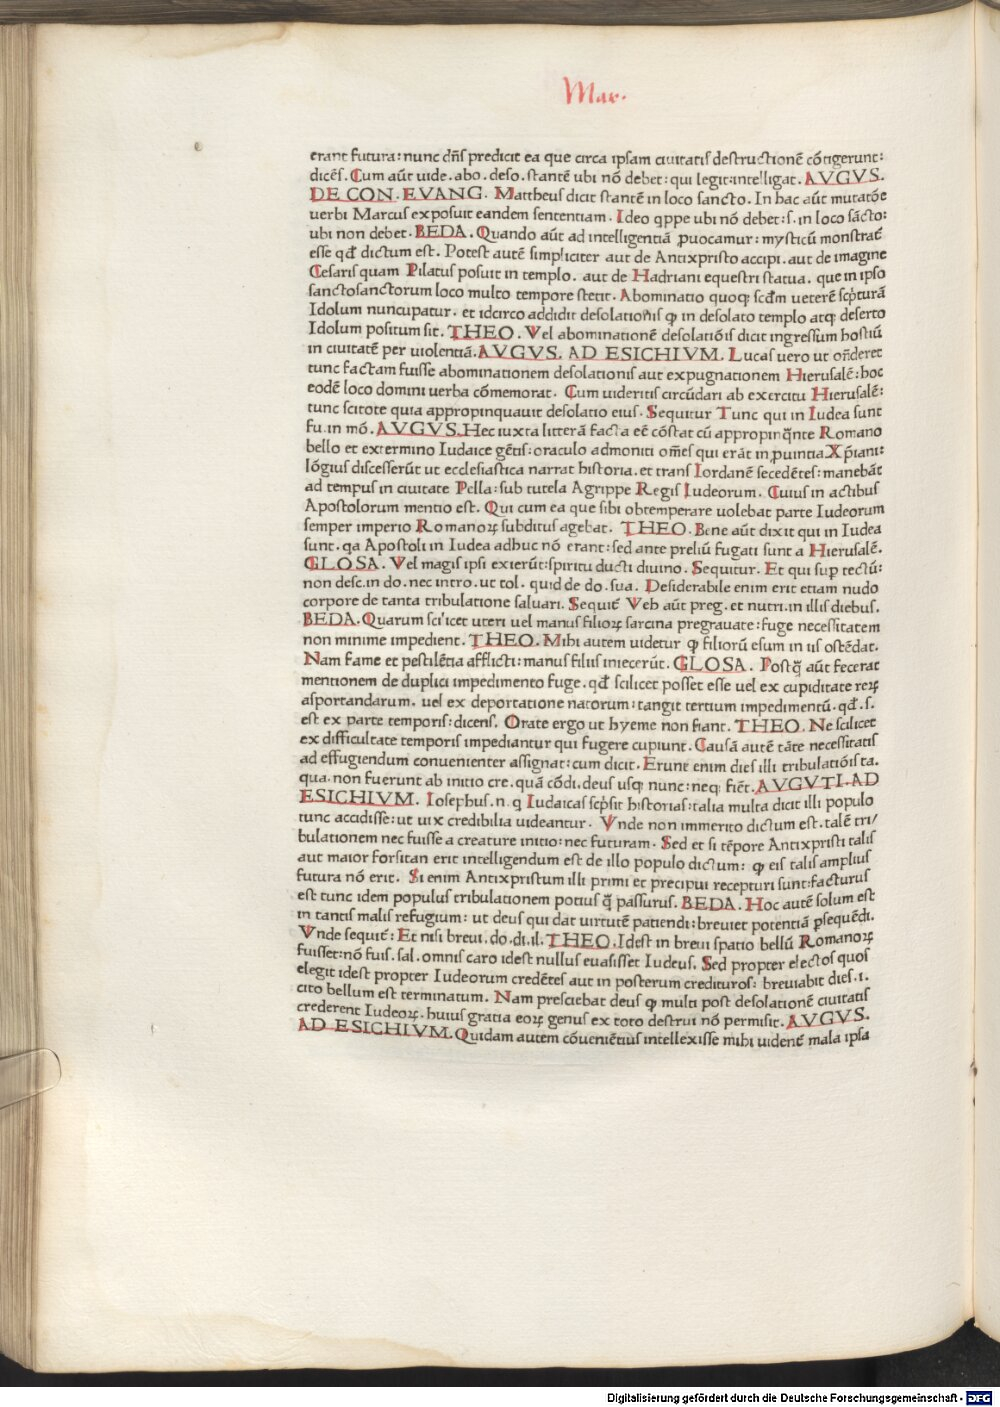 Mar.
erant futura: nunc dn̄s predicit ea que circa ipsam ciuitatis destructionē cōtigerunt:
dicēs. Cum aūt uide. abo. deso. stantē ubi nō debet: qui legit: intelligat. AVGVS.
DE CON. EVANG. Mattheus dicit stantē in loco sancto. In hac aūt mutatōe
uerbi Marcus exposuit eandem sententiam. Ideo qppe ubi nō debet: s. in loco sācto:
ubi non debet. BEDA. Quando aūt ad intelligentiā ꝓuocamur: mysticū monstrat̄
esse qd̄ dictum est. Potest autē simpliciter aut de Antixpristo accipi. aut de imagine
Cesaris quam Pilatus posuit in templo. aut de Hadriani equestri statua. que in ipso
sanctosanctorum loco multo tempore stetit. Abominatio quoqꝫ scd̄m ueterē scp̄turā
Idolum nuncupatur. et idcirco addidit desolationis ꝙ in desolato templo atqꝫ deserto
Idolum positum sit. THEO. Vel abominationē desolatiōis dicit ingressum hostiū
in ciuitatē per uiolentiā. AVGVS. AD ESICHIVM. Lucas uero ut on̄deret
tunc factam fuisse abominationem desolationis aut expugnationem Hierusalē: hoc
eodē loco domini uerba cōmemorat. Cum uideritis circūdari ab exercitu Hierusalē:
tunc scitote quia appropinquauit desolatio eius. Sequitur Tunc qui in Iudea sunt
fu. in mō. AVGVS. Hec iuxta litterā facta eē cōstat cū appropinq̄nte Romano
bello et extermino Iudaice gētis: oraculo admoniti om̄es qui erāt in ꝓuintia Xp̄iani:
lōgius discesserūt ut ecclesiastica narrat historia. et trans Iordanē secedētes: manebāt
ad tempus in ciuitate Pella: sub tutela Agrippe Regis Iudeorum. Cuius in actibus
Apostolorum mentio est. Qui cum ea que sibi obtemperare uolebat parte Iudeorum
semper imperio Romanoꝝ subditus agebat. THEO. Bene aūt dixit qui in Iudea
sunt. qa Apostoli in Iudea adhuc nō erant: sed ante preliū fugati sunt a Hierusalē.
GLOSA. Vel magis ipsi exierūt: spiritu ducti diuino. Sequitur. Et qui suꝑ tectū:
non desc. in do. nec intro. ut tol. quid de do. sua. Desiderabile enim erit etiam nudo
corpore de tanta tribulatione saluari. Sequit̄ Veh aūt preg. et nutri. in illis diebus.
BEDA. Quarum scilicet uteri uel manus filioꝝ sarcina pregrauate: fuge necessitatem
non minime impedient. THEO. Mihi autem uidetur ꝙ filiorū esum in iis ostēdat.
Nam fame et pestilētia afflicti: manus filiis iniecerūt. GLOSA. Postq̄ aūt fecerat
mentionem de duplici impedimento fuge. qd̄ scilicet posset esse uel ex cupiditate reꝝ
asportandarum. uel ex deportatione natorum: tangit tertium impedimentū. qd̄. s.
est ex parte temporis: dicens. Orate ergo ut hyeme non fiant. THEO. Ne scilicet
ex difficultate temporis impediantur qui fugere cupiunt. Causā autē tāte necessitatis
ad effugiendum conuenienter assignat: cum dicit. Erunt enim dies illi tribulatiōis ta.
qua. non fuerunt ab initio cre. quā cōdi. deus usqꝫ nunc: neqꝫ fiēt. AVGVTI. AD
ESICHIVM. Iosephus. n. q Iudaicas scp̄sit historias: talia multa dicit illi populo
tunc accidisse: ut uix credibilia uideantur. Vnde non immerito dictum est. talē tri/
bulationem nec fuisse a creature initio: nec futuram. Sed et si tēpore Antixpristi talis
aut maior forsitan erit intelligendum est de illo populo dictum: ꝙ eis talis amplius
futura nō erit. Si enim Antixpristum illi primi et precipui recepturi sunt: facturus
est tunc idem populus tribulationem potius q̄ passurus. BEDA. Hoc autē solum est
in tantis malis refugium: ut deus qui dat uirtutē patiendi: breuiet potentiā ꝑsequēdi.
Vnde sequit̄: Et nisi breui. do. di. il. THEO. Idest in breui spatio bellū Romanoꝝ
fuisset: nō fuis. sal. omnis caro idest nullus euasisset Iudeus. Sed propter electos quos
elegit idest propter Iudeorum credētes aut in posterum credituros: breuiabit dies. i.
cito bellum est terminatum. Nam presciebat deus ꝙ multi post desolationē ciuitatis
crederent Iudeoꝝ. huius gratia eoꝝ genus ex toto destrui nō permisit. AVGVS.
AD ESICHIVM. Quidam autem cōueniētius intellexisse mihi uident̄ mala ipsa
Digitalisierung gefördert durch die Deutsche Forschungsgemeinschaft - DFG